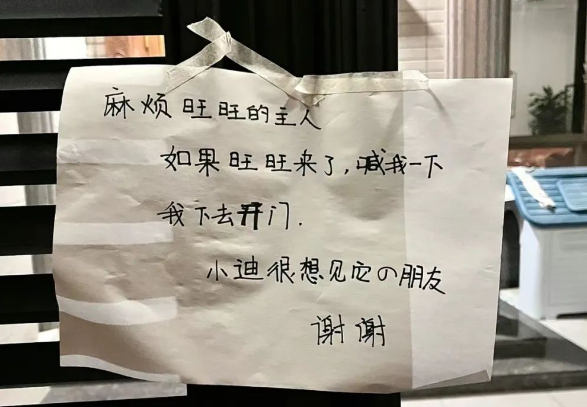 麻烦旺旺的主人
如果旺旺来了，喊我一下
我下去开门.
小迪很想见它の朋友
谢谢